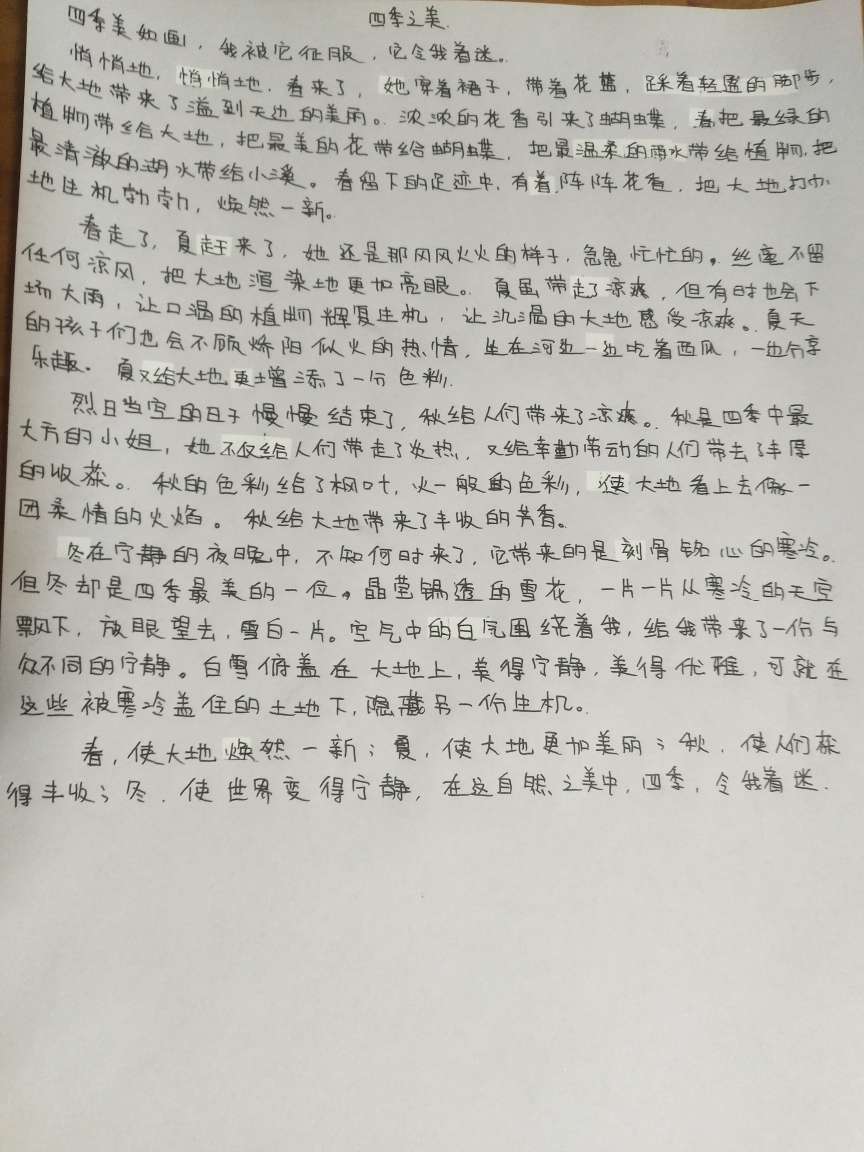 四季之美.
四季美如画，我被它征服，它令我着迷。
悄悄地，悄悄地，春来了，她穿着裙子，带着花篮，踩着轻盈的脚步，
给大地带来了溢到天边的美雨。浓浓的花香引来了蝴蝶，春把最绿的
植物带给大地，把最美的花带给蝴蝶，把最温柔的雨水带给植物，把
最清澈的湖水带给小溪。春留下的足迹中，有着阵阵花香，把大地打扮
地生机勃勃，焕然一新。
春走了，夏赶来了，她还是那风风火火的样子，急急忙忙的。丝毫不留
任何凉风，把大地渲染地更加亮眼。夏虽带走了凉爽，但有时也会下
场大雨，让口渴的植物辉复生机，让沉温的大地感受凉爽。夏天
的孩子们也会不顾烯阳似火的热情，坐在河边一边吃着西瓜，一边分享
乐趣。夏又给大地更增添了一分色彩.
烈日当空的日子慢慢结束了，秋给人们带来了凉爽。秋是四季中最
大方的小姐，她不仅给人们带走了炎热，又给辛勤劳动的人们带去了丰厚
的收获。秋的色彩给了枫叶，火一般的色彩，使大地看上去像一
团柔情的火焰。秋给大地带来了丰收的芳香。
冬在宁静的夜晚中，不知何时来了，它带来的是刻骨铭心的寒冷。
但冬却是四季最美的一位。晶莹锡透的雪花，一片一片从寒冷的天空
飘下，放眼望去，雪白一片。空气中的白气围绕着我，给我带来了一份与
众不同的宁静。白雪俯盖在大地上，美得宁静，美得优雅，可就在
这些被寒冷盖住的土地下，隐藏另一份生机。
春，使大地焕然一新；夏，使大地更加美丽；秋，使人们获
得丰收；冬，使世界变得宁静，在这自然之美中，四季，令我着迷.